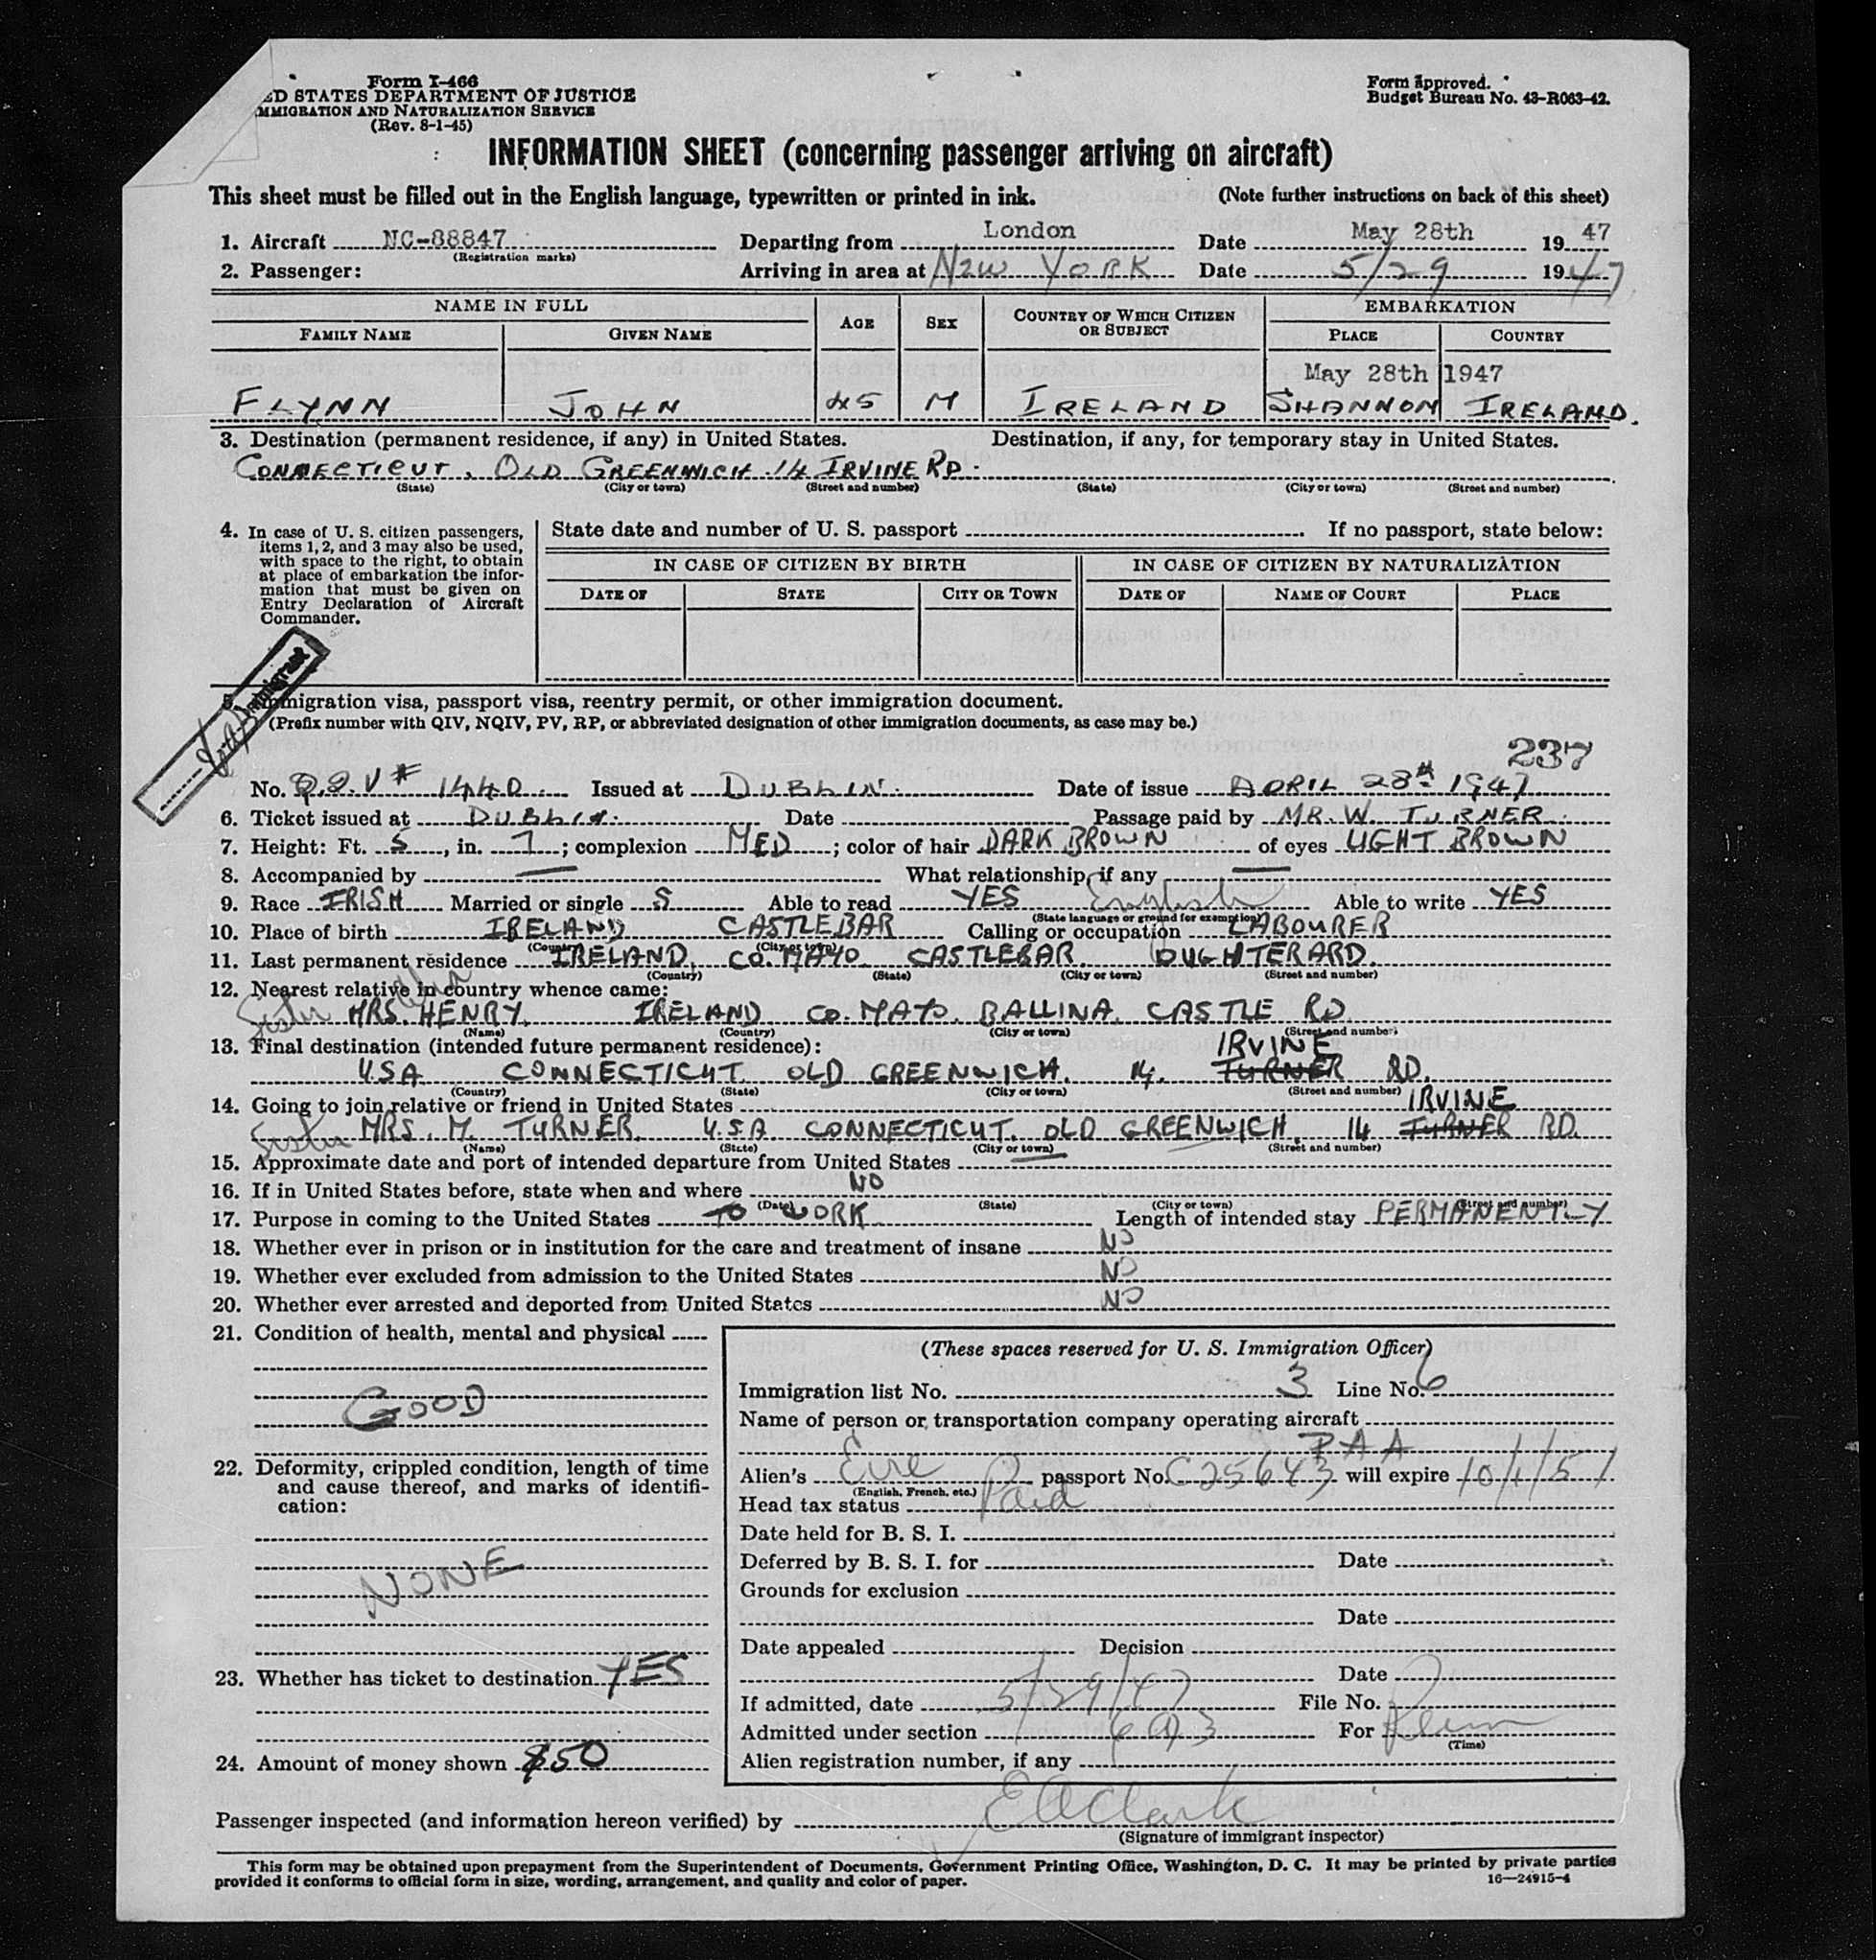 Form I-466
ED STATES DEPARTMENT OF JUSTICE
MMIGRATION AND NATURALIZATION SERVICE
(Rev. 8-1-45)
Form approved.
Budget Bureau No. 43-R063-42.
INFORMATION SHEET (concerning passenger arriving on aircraft)
This sheet must be filled out in the English language, typewritten or printed in ink. (Note further instructions on back of this sheet)
1. Aircraft NC-88847 Departing from London Date May 28th 1947
(Registration marks)
2. Passenger: Arriving in area at NEW YORK Date 5/29 1947
NAME IN FULL AGE SEX COUNTRY OF WHICH CITIZEN OR SUBJECT EMBARKATION
FAMILY NAME GIVEN NAME PLACE COUNTRY
May 28th 1947
FLYNN JOHN 45 M IRELAND SHANNON IRELAND.
3. Destination (permanent residence, if any) in United States. Destination, if any, for temporary stay in United States.
CONNECTICUT, OLD GREENWICH 14 IRVINE RD.
(State) (City or town) (Street and number) (State) (City or town) (Street and number)
4. In case of U. S. citizen passengers, items 1, 2, and 3 may also be used, with space to the right, to obtain at place of embarkation the information that must be given on Entry Declaration of Aircraft Commander.
State date and number of U. S. passport If no passport, state below:
IN CASE OF CITIZEN BY BIRTH IN CASE OF CITIZEN BY NATURALIZATION
DATE OF STATE CITY OR TOWN DATE OF NAME OF COURT PLACE
Immigrant
5. Immigration visa, passport visa, reentry permit, or other immigration document.
(Prefix number with QIV, NQIV, PV, RP, or abbreviated designation of other immigration documents, as case may be.)
237
No. Q.I.V # 1440 Issued at DUBLIN. Date of issue APRIL 28th 1947
6. Ticket issued at DUBLIN. Date Passage paid by MR. W. TURNER
7. Height: Ft. 5, in. 7; complexion MED; color of hair DARK BROWN of eyes LIGHT BROWN
8. Accompanied by — What relationship, if any —
9. Race IRISH Married or single S Able to read YES English Able to write YES
(State language or ground for exemption)
10. Place of birth IRELAND CASTLEBAR Calling or occupation LABOURER
(Country) (City or town)
11. Last permanent residence IRELAND CO. MAYO CASTLEBAR OUGHTERARD.
(Country) (State) (City or town) (Street and number)
12. Nearest relative in country whence came:
Sister MRS. HENRY. IRELAND CO. MAYO. BALLINA. CASTLE RD
(Name) (Country) (City or town) (Street and number)
13. Final destination (intended future permanent residence): IRVINE
USA CONNECTICUT OLD GREENWICH. 14. TURNER RD.
(Country) (State) (City or town) (Street and number)
14. Going to join relative or friend in United States IRVINE
Sister MRS. M. TURNER. U.S.A. CONNECTICUT. OLD GREENWICH, 14 TURNER RD.
(Name) (State) (City or town) (Street and number)
15. Approximate date and port of intended departure from United States —
16. If in United States before, state when and where NO
(Date) (State) (City or town) (Street and number)
17. Purpose in coming to the United States TO WORK Length of intended stay PERMANENTLY
18. Whether ever in prison or in institution for the care and treatment of insane NO
19. Whether ever excluded from admission to the United States NO
20. Whether ever arrested and deported from United States NO
21. Condition of health, mental and physical
GOOD
22. Deformity, crippled condition, length of time and cause thereof, and marks of identification:
NONE
23. Whether has ticket to destination YES
24. Amount of money shown $50
(These spaces reserved for U. S. Immigration Officer)
Immigration list No. 3 Line No. 6
Name of person or transportation company operating aircraft
PAA
Alien's Eire passport No. C25643 will expire 10/1/51
(English, French, etc.)
Head tax status Paid
Date held for B. S. I.
Deferred by B. S. I. for Date
Grounds for exclusion
Date
Date appealed Decision
Date
If admitted, date 5/29/47 File No.
Admitted under section 6(a)3 For Perm
(Time)
Alien registration number, if any
Passenger inspected (and information hereon verified) by E A Clark
(Signature of immigrant inspector)
This form may be obtained upon prepayment from the Superintendent of Documents, Government Printing Office, Washington, D. C. It may be printed by private parties
provided it conforms to official form in size, wording, arrangement, and quality and color of paper. 16—24915-4